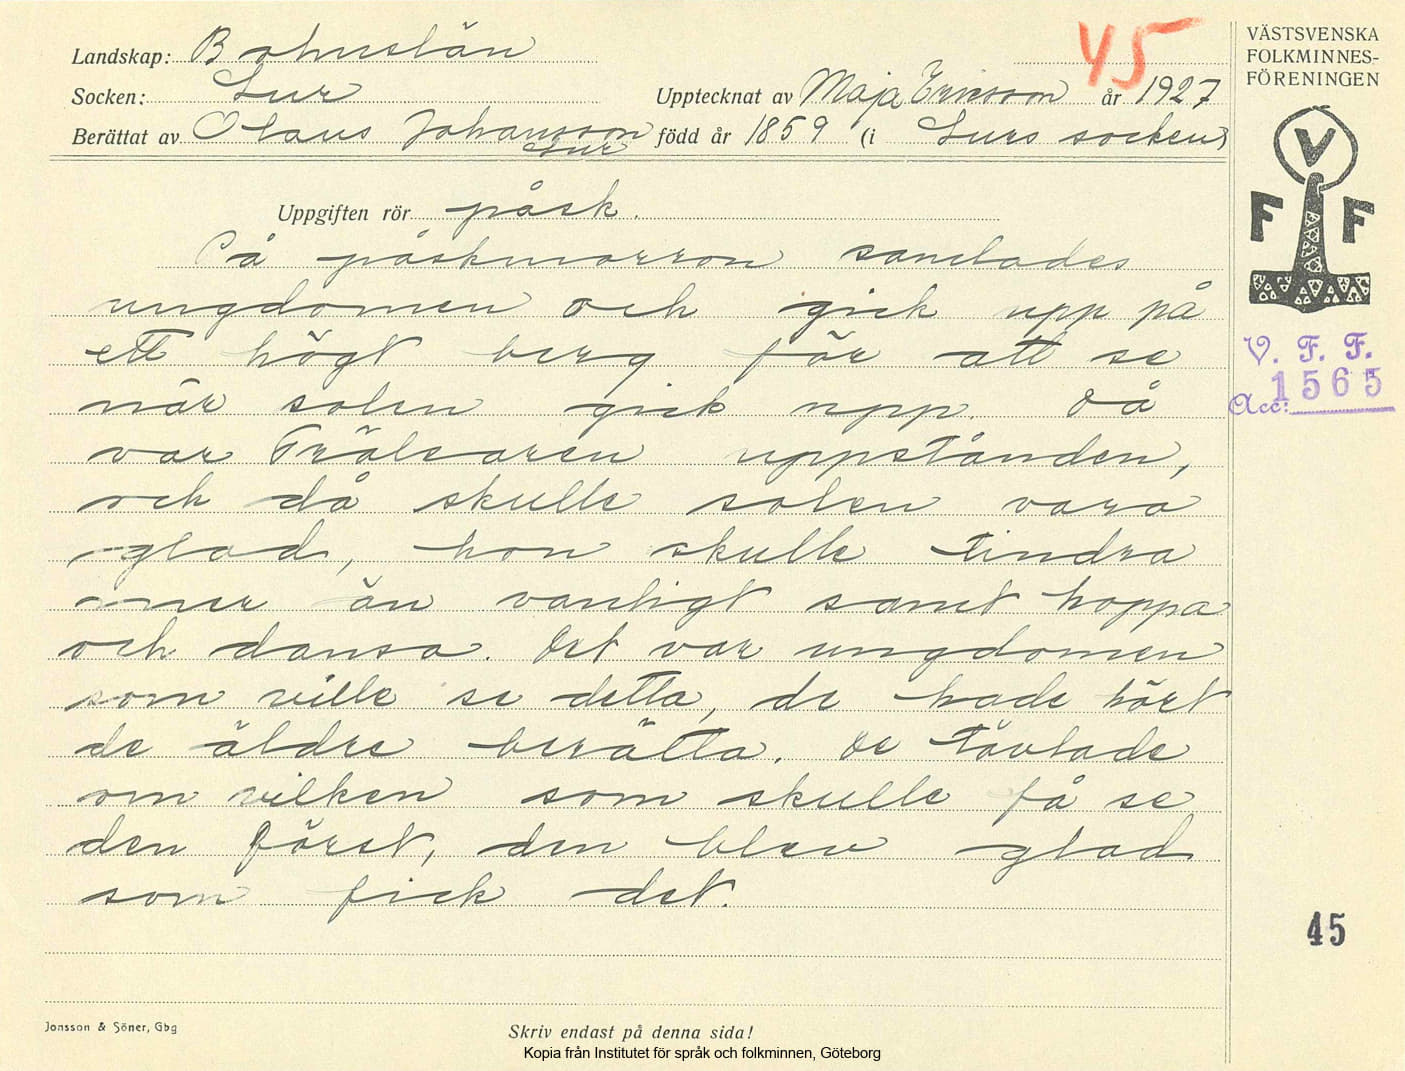 Landskap: Bohuslän
45
Socken: Lur
Upptecknat av Maja Ericsson år 1927
Berättat av Olaus Johansson född år 1859 (i Lurs socken)
Lur
Uppgiften rör påsk.
På påskmorron samlades
ungdomen och gick upp på
ett högt berg för att se
när solen gick upp. Då
var Frälsaren uppstånden,
och då skulle solen vara
glad, hon skulle tindra
mer än vanligt samt hoppa
och dansa. Det var ungdomen
som ville se detta, de hade hört
de äldre berätta. De tävlade
om vilken som skulle få se
den först, den blev glad
som fick det.
VÄSTSVENSKA
FOLKMINNES-
FÖRENINGEN
V
F F
V. F. F.
Acc: 1565
45
Jonsson & Söner, Gbg
Skriv endast på denna sida!
Kopia från Institutet för språk och folkminnen, Göteborg